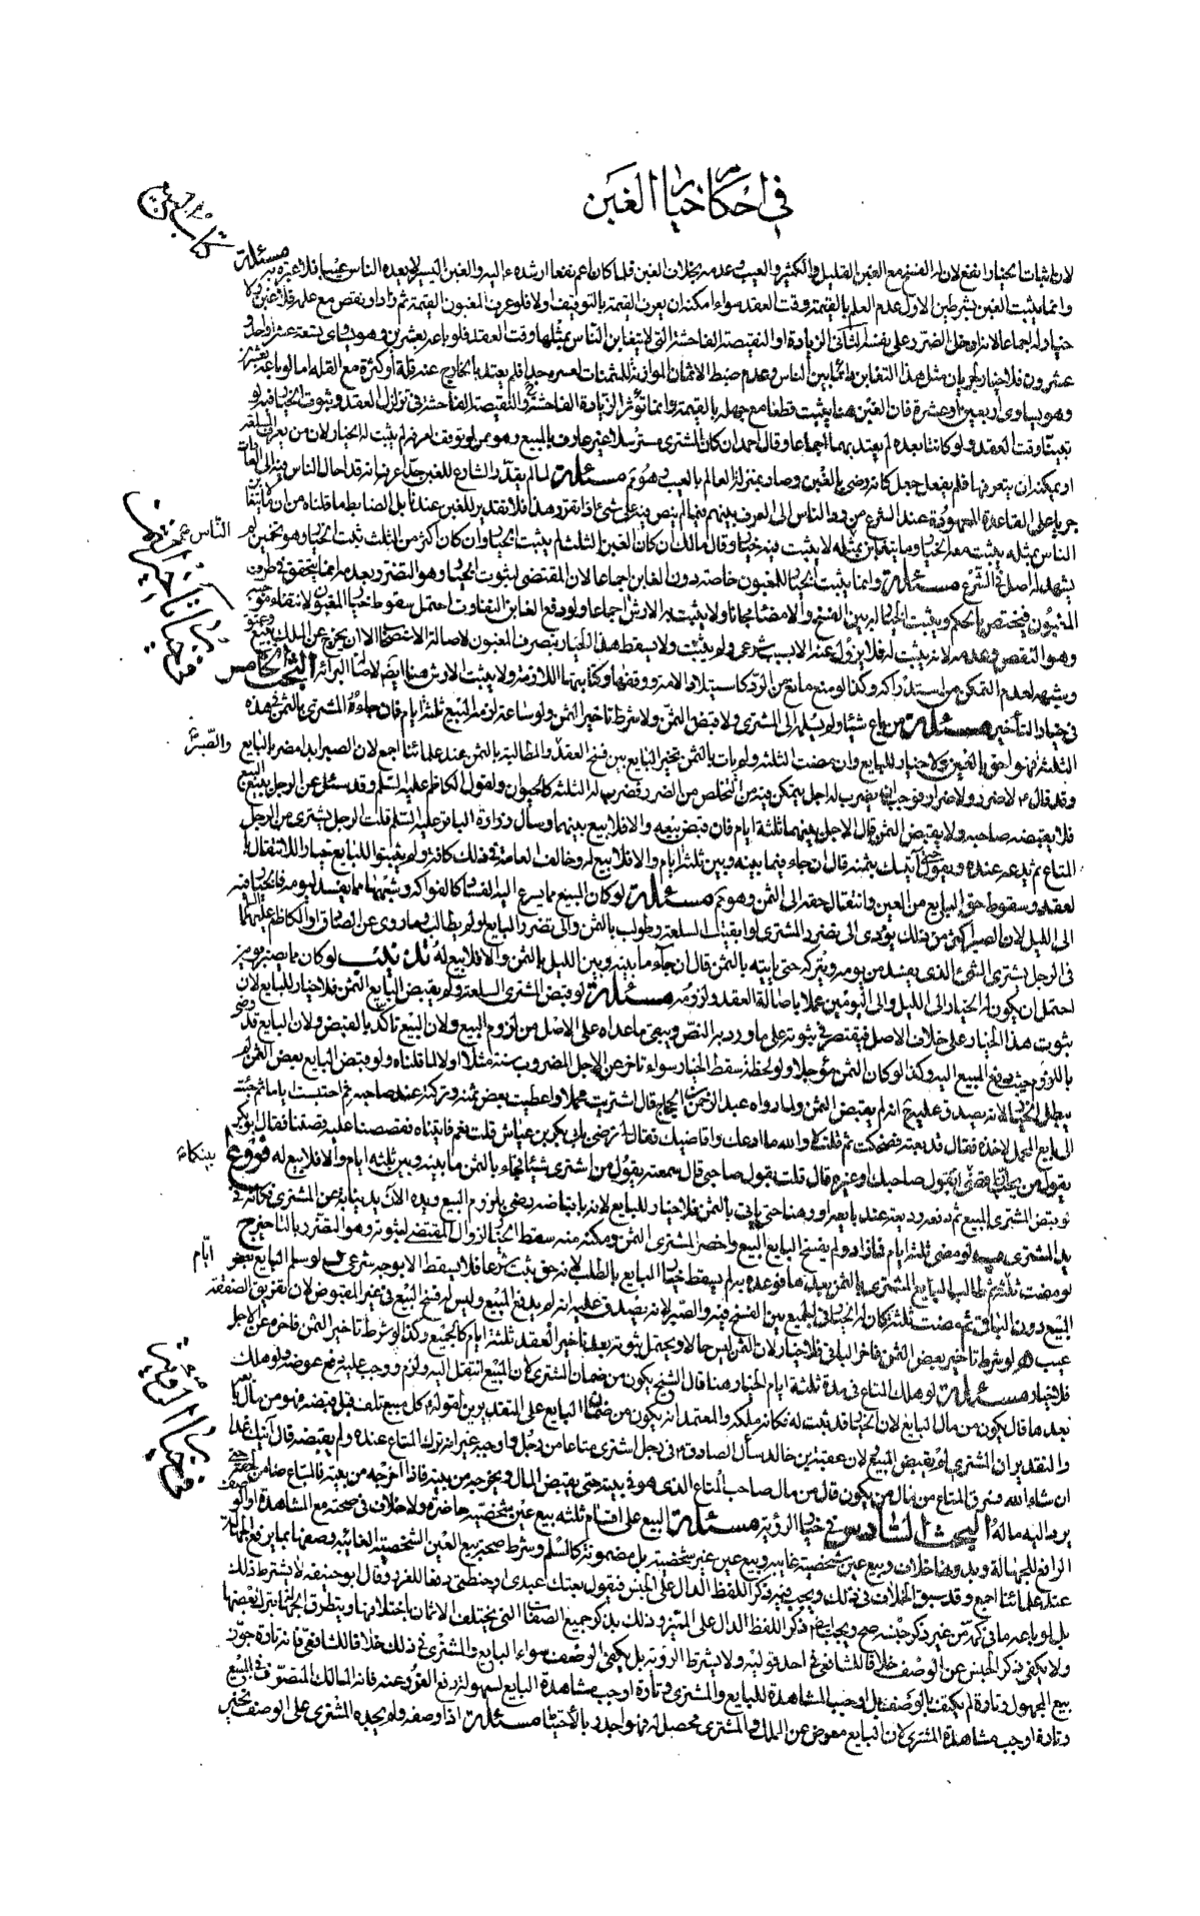 في احكام خيار الغبن
كتاب البيع
لان اثبات الخيار انفع لان له الفسخ مع الغبن القليل والكثير والعيب وعدمه بخلاف الغبن فلما كان اعم نفعا ارشده اليه والغبن اليسير لا يعده الناس عيبا فلا عبرة به مسئلة
وانما يثبت الغبن بشرطين الاول عدم العلم بالقيمة وقت العقد سواء امكنه ان يعرف القيمة بالتوقيف اولا فلو عرف المغبون القيمة ثم زاد او نقص مع علمه فلا غبن ولا
خيار له اجماعا لانه ادخل الضرر على نفسه الثاني الزيادة او النقيصة الفاحشة التي لا يتغابن الناس بمثلها وقت العقد فلو باعه بعشرين وهو يساوي تسعة عشر او احد و
عشرون فلا خيار لجريان مثل هذا التغابن دائما بين الناس وعدم ضبط الاثمان الموازية للمثمنات لعسره جدا فلم يعتد بالخارج عنه قلة او كثرة مع القلة اما لو باعه بعشرين
وهو يساوي اربعين او عشرة فان الغبن هنا يثبت قطعا مع جهله بالقيمة وانما تؤثر الزيادة الفاحشة والنقيصة الفاحشة في تزلزل العقد وثبوت الخيار فيه لو
تبينتا وقت العقد ولو كانتا بعده لم يعتد بهما اجماعا وقال احمد ان كان المشتري مسترسلا غير عارف بالمبيع وهو ممن لو توقف لعرفه لم يثبت له الخيار لان من يعرف السلعة
او يمكنه ان يتعرفها فلم يفعل جعل كانه رضي بالغبن وصار بمنزلة العالم بالعيب وهو تم مسئلة لما لم يقدر الشارع للغبن حدا عرفنا انه قد احال الناس فيه الى العادات
جريا على القاعدة المعهودة عند الشرع من رد الناس الى العرف بينهم فيما لم ينص فيه على شئ اذا تقرر هذا فلا تقدير للغبن عندنا بل الضابط ما قلناه من ان ما يتغابن
الناس بمثله يثبت معه الخيار وما يتغابن بمثله لا يثبت فيه خيار وقال مالك ان كان الغبن الثلث لم يثبت الخيار وان كان اكثر من الثلث ثبت الخيار وهو تخمين لم
يشهد له اصل في الشرع مسئلة وانما يثبت الخيار للمغبون خاصة دون الغابن اجماعا لان المقتضي لثبوت الخيار وهو التضرر وعدمه انما يتحقق في طرف
المغبون فيختص بالحكم ويثبت الخيار له بين الفسخ والامضاء مجانا ولا يثبت به الارش اجماعا ولو دفع الغابن التفاوت احتمل سقوط خيار المغبون لانتفاء موجبه
وهو النقص وعدمه لانه يثبت له فلا يزول عنه الا بسبب شرعي ولم يثبت ولا يسقط هذا الخيار بتصرف المغبون لاصالة الاستصحاب الا ان يخرج عن الملك ببيع وعتق
وشبهه لعدم التمكن من استدراكه وكذا لو منع مانع من الرد كاستيلاد الامة ووقفها وكتابتها اللازمة ولا يثبت الارش هنا ايضا لاصالة البرائة البحث الخامس
في خيار التأخير مسئلة من باع شيئا ولم يسلمه الى المشتري ولا قبض الثمن ولا شرط تاخير الثمن ولو ساعة لزم البيع ثلثة ايام فان جاءه المشتري بالثمن في هذه
الثلثة فهو احق بالعين ولا خيار للبايع وان مضت الثلثة ولم يات بالثمن تخير البايع بين فسخ العقد والمطالبة بالثمن عند علمائنا اجمع لان الصبر ابدا مضر بالبايع
وقد قال ع لا ضرر ولا ضرار فوجب ان يضرب له اجل يتمكن فيه من التخلص من الضرر فضرب له الثلثة كالحيوان ولقول الكاظم عليه السلم وقد سئل عن الرجل يبيع البيع
فلا يقبضه صاحبه ولا يقبض الثمن قال الاجل بينهما ثلثة ايام فان قبض بيعه والا فلا بيع بينهما وسأل زرارة الباقر عليه السلم قلت الرجل يشتري من الرجل
المتاع ثم يدعه عنده ويقول حتى آتيك بثمنه قال ان جاء فيما بينه وبين ثلثة ايام والا فلا بيع له وخالف العامة في ذلك كافة ولم يثبتوا للبايع خيارا لانتقال
لعقد وسقوط حق البايع من العين وانتقال حقه الى الثمن وهو تم مسئلة لو كان المبيع مما يسرع اليه الفساد كالفواكه وشبهها مما يفسد ليومه فالخيار فيه
الى الليل لان الصبر اكثر من ذلك يؤدي الى تضرر المشتري لو ابقيت السلعة وطولب بالثمن والى تضرر البايع لو لم يطالب وما روي عن الصادق او الكاظم عليهما
في الرجل يشتري الشئ الذي يفسد من يومه ويتركه حتى ياتيه بالثمن قال ان جاء ما بينه وبين الليل بالثمن والا فلا بيع له تذنيب لو كان ما يصبر يومين
احتمل ان يكون الخيار الى الليل والى اليومين عملا باصالة العقد ولزومه مسئلة لو قبض المشتري السلعة ولم يقبض البايع الثمن فلا خيار للبايع لان
ثبوت هذا الخيار على خلاف الاصل فيقتصر في ثبوته على ما ورد به النص ويبقى ما عداه على الاصل من لزوم البيع ولان البيع تأكد بالقبض ولان البايع قد رضي
باللزوم حيث دفع المبيع اليه وكذا لو كان الثمن مؤجلا ولو لحظة سقط الخيار سواء تاخر عن الاجل المضروب سنة مثلا اولا لما قلناه ولو قبض البايع بعض الثمن لم
يبطل الخيار لانه يصدق عليه ح انه لم يقبض الثمن ولما رواه عبد الرحمن بن الحجاج قال اشتريت محملا واعطيت بعض ثمنه وتركته عند صاحبه ثم احتبست اياما ثم جئت
الى بايع المحمل لاخذه فقال قد بعته فضحكت ثم قلت لا والله ما ادعك واقاضيك فقال اترضى بابي بكر بن عياش قلت نعم فاتيناه فقصصنا عليه قصتنا فقال ابو بكر
بقول من تحب ان اقضي بقول صاحبك او غيره قال قلت بقول صاحبي قال سمعته يقول من اشترى شيئا فجاء بالثمن ما بينه وبين ثلثة ايام والا فلا بيع له فروع ا
لو قبض المشتري المبيع ثم دفعه وديعة عند بايعه او رهنا حتى ياتي بالثمن فلا خيار للبايع لانه باقباضه رضي بلزوم البيع ويده الان يد نيابة عن المشتري فكانه في
يد المشتري ب لو مضى ثلثة ايام فازاد ولم يفسخ البايع البيع واحضر المشتري الثمن ومكنه منه سقط الخيار لزوال المقتضي لثبوته وهو التضرر بالتاخير ج
لو مضت ثلثة ثم طالب البايع المشتري بالثمن بعدها فوعده به لم يسقط خيار البايع بالطلب لانه حق يثبت شرعا فلا يسقط الا بوجه شرعي د لو سلم البايع بعض
المبيع دون الباقي ثم مضت ثلثة كان له الخيار في الجميع بين الفسخ فيه والصبر لانه يصدق عليه انه لم يدفع المبيع وليس له فسخ البيع في غير المقبوض لان تفريق الصفقة
عيب ه لو شرط تاخير بعض الثمن فاخر الباقي فلا خيار لان الثمن ليس حالا ويحتمل ثبوته بعد تاخير النقد ثلثة ايام كالجميع وكذا لو شرط تاخير الثمن فاخره عن الاجل
فلا خيار مسئلة لو هلك المتاع في مدة ثلثة ايام الخيار هنا قال الشيخ يكون من ضمان المشتري لان المبيع انتقل اليه ولزم ووجب عليه دفع عوضه ولو هلك
بعدها قال يكون من مال البايع لان الخيار قد ثبت له فكانه ملكه والمعتمد انه يكون من ضمان البايع على التقديرين لقوله ع كل مبيع تلف قبل قبضه فهو من مال بايعه
والتقدير ان المشتري لم يقبض المبيع لان عقبة بن خالد سأل الصادق ع في رجل اشترى متاعا من رجل واوجبه غير انه ترك المتاع عنده ولم يقبضه قال آتيك غدا
ان شاء الله فسرق المتاع من مال من يكون قال من مال صاحب المتاع الذي هو في بيته حتى يقبض المال ويخرجه من بيته فاذا اخرجه من بيته فالمبتاع ضامن لحقه حتى
يرد اليه ماله البحث السادس في خيار الرؤية مسئلة البيع على اقسام ثلثة بيع عين مشخصة حاضرة ولا خلاف في صحته مع المشاهدة او الوصف
الرافع للجهالة وبدونهما خلاف وبيع عين مشخصة غايبة وبيع عين غير مشخصة بل مضمونة كالسلم وشرط صحة بيع العين الشخصية الغائبة وصفها بما يرفع الجهالة
عند علمائنا اجمع وقد سبق الخلاف في ذلك ويجب فيه ذكر اللفظ الدال على الجنس فيقول بعتك عبدي او حنطتي دفعا للغرر وقال ابو حنيفة لا يشترط ذلك
بل لو باعه ما في كمه من غير ذكر جنسه صح ويجب ايضا ذكر اللفظ الدال على التميز وذلك بذكر جميع الصفات التي يختلف الاثمان باختلافها ويتطرق الجهالة بترك بعضها
ولا يكفي ذكر الجنس عن الوصف خلافا للشافعي في احد قوليه ولا يشترط الرؤية بل يكفي الوصف سواء البايع والمشتري في ذلك خلافا للشافعي فانه تارة جوز
بيع المجهول وتارة لم يكتف بالوصف بل اوجب المشاهدة للبايع والمشتري وتارة اوجب مشاهدة البايع لسهولة رفع الغرر عنه فانه المالك المتصرف في المبيع
وتارة اوجب مشاهدة المشتري لان البايع معوض عن الملك والمشتري محصل له فهو اجدر بالاحتياط مسئلة اذا وصفه ولم يجده المشتري على الوصف تخير